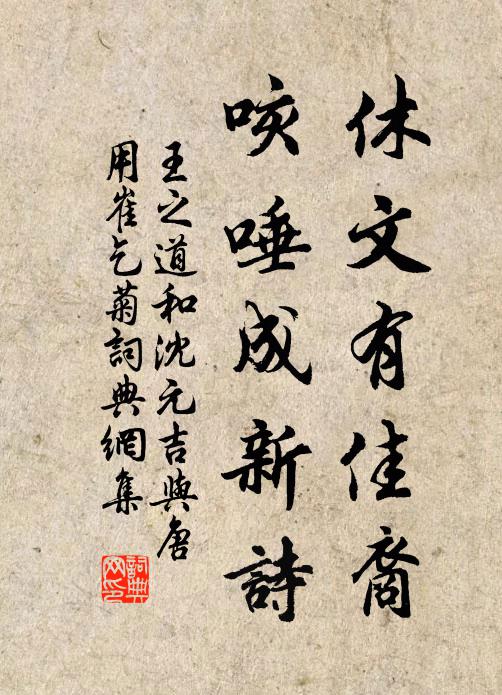 休文有佳裔
咳唾成新詩
王之道和沈元吉與唐
用崔乞菊詞典網集
詞典网印